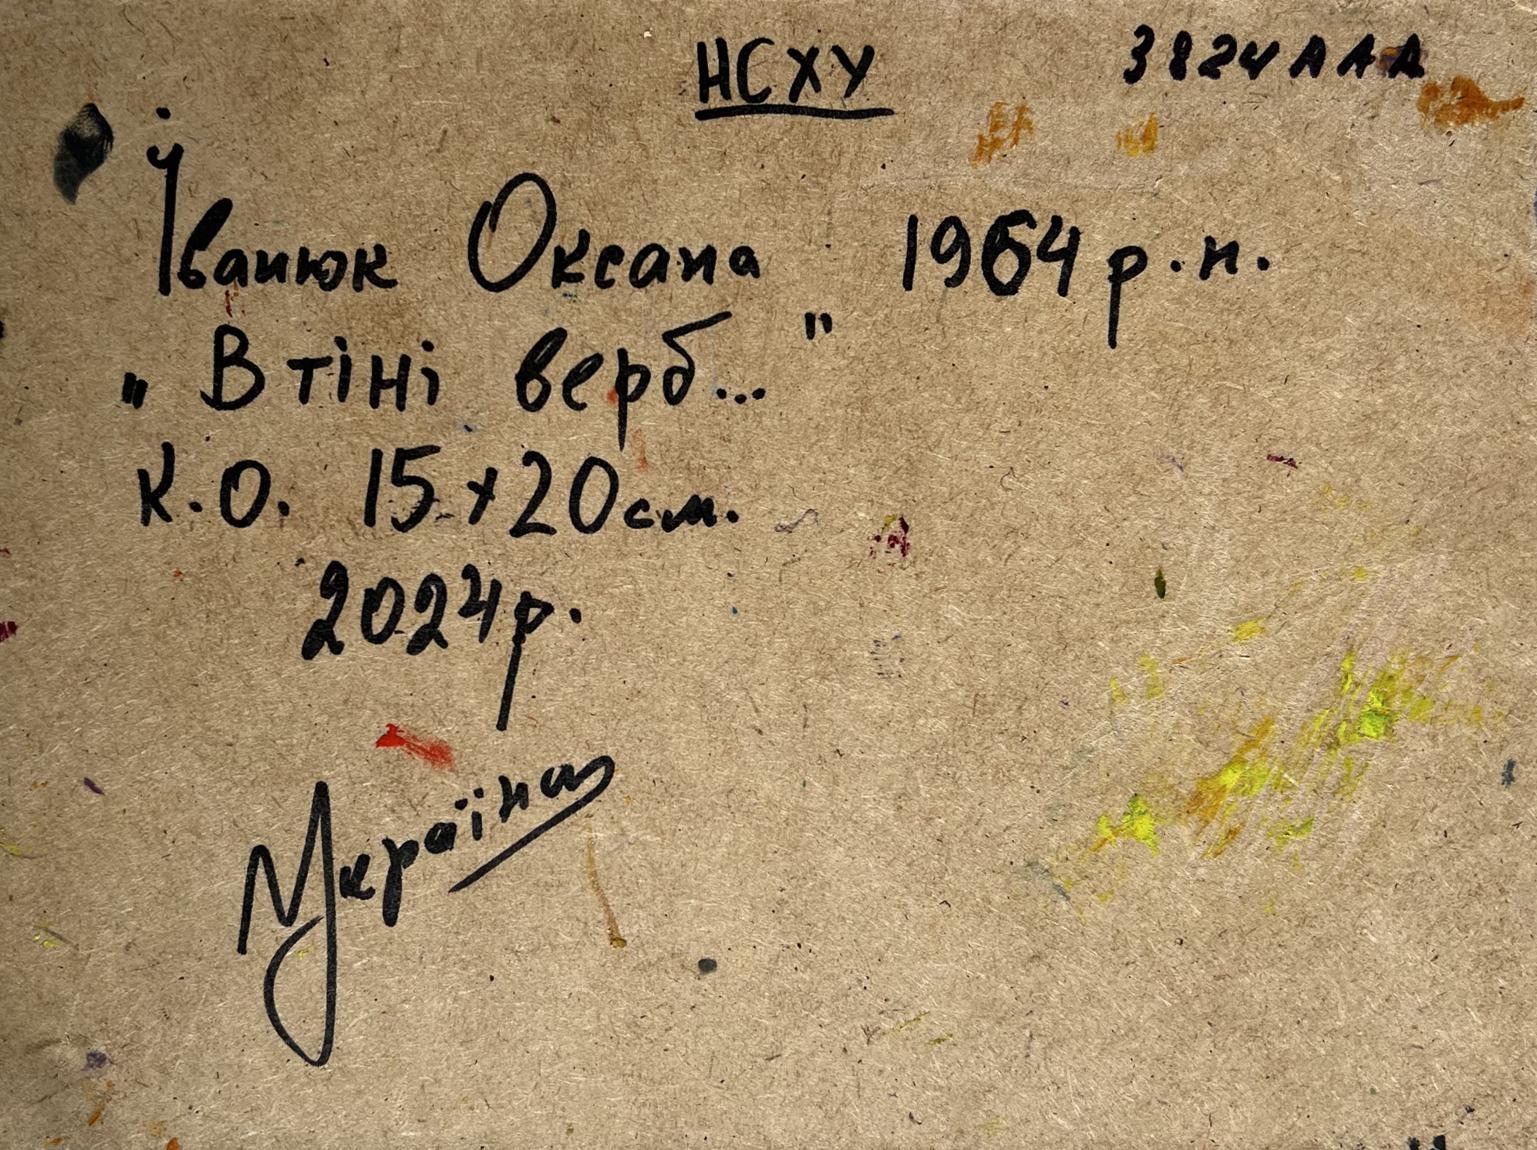 НСХУ 3824ААА
Іванюк Оксана 1964 р.н.
„В тіні верб..."
К.О. 15х20см.
2024р.
Україна